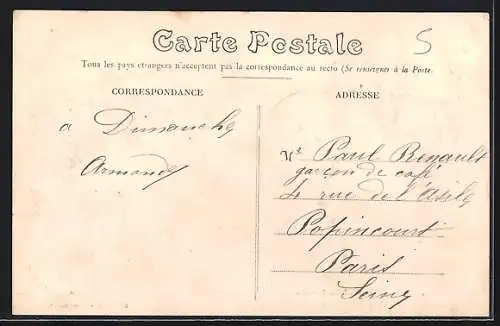 Carte Postale
5
Tous les pays étrangers n'acceptent pas la correspondance au recto (Se renseigner à la Poste
CORRESPONDANCE
ADRESSE
a Dimanche
Armand
Mr Paul Renault
garçon de café
4 rue de l'Asile
Popincourt
Paris
Seine